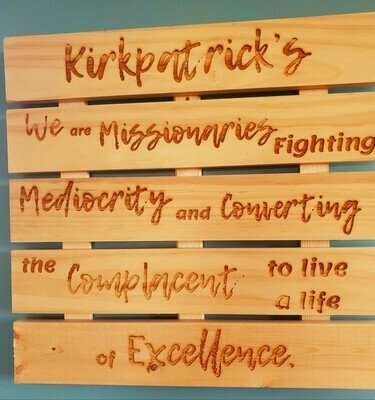 Kirkpatrick's
We are Missionaries Fighting
Mediocrity and Converting
the Complacent to live
a life
of Excellence.